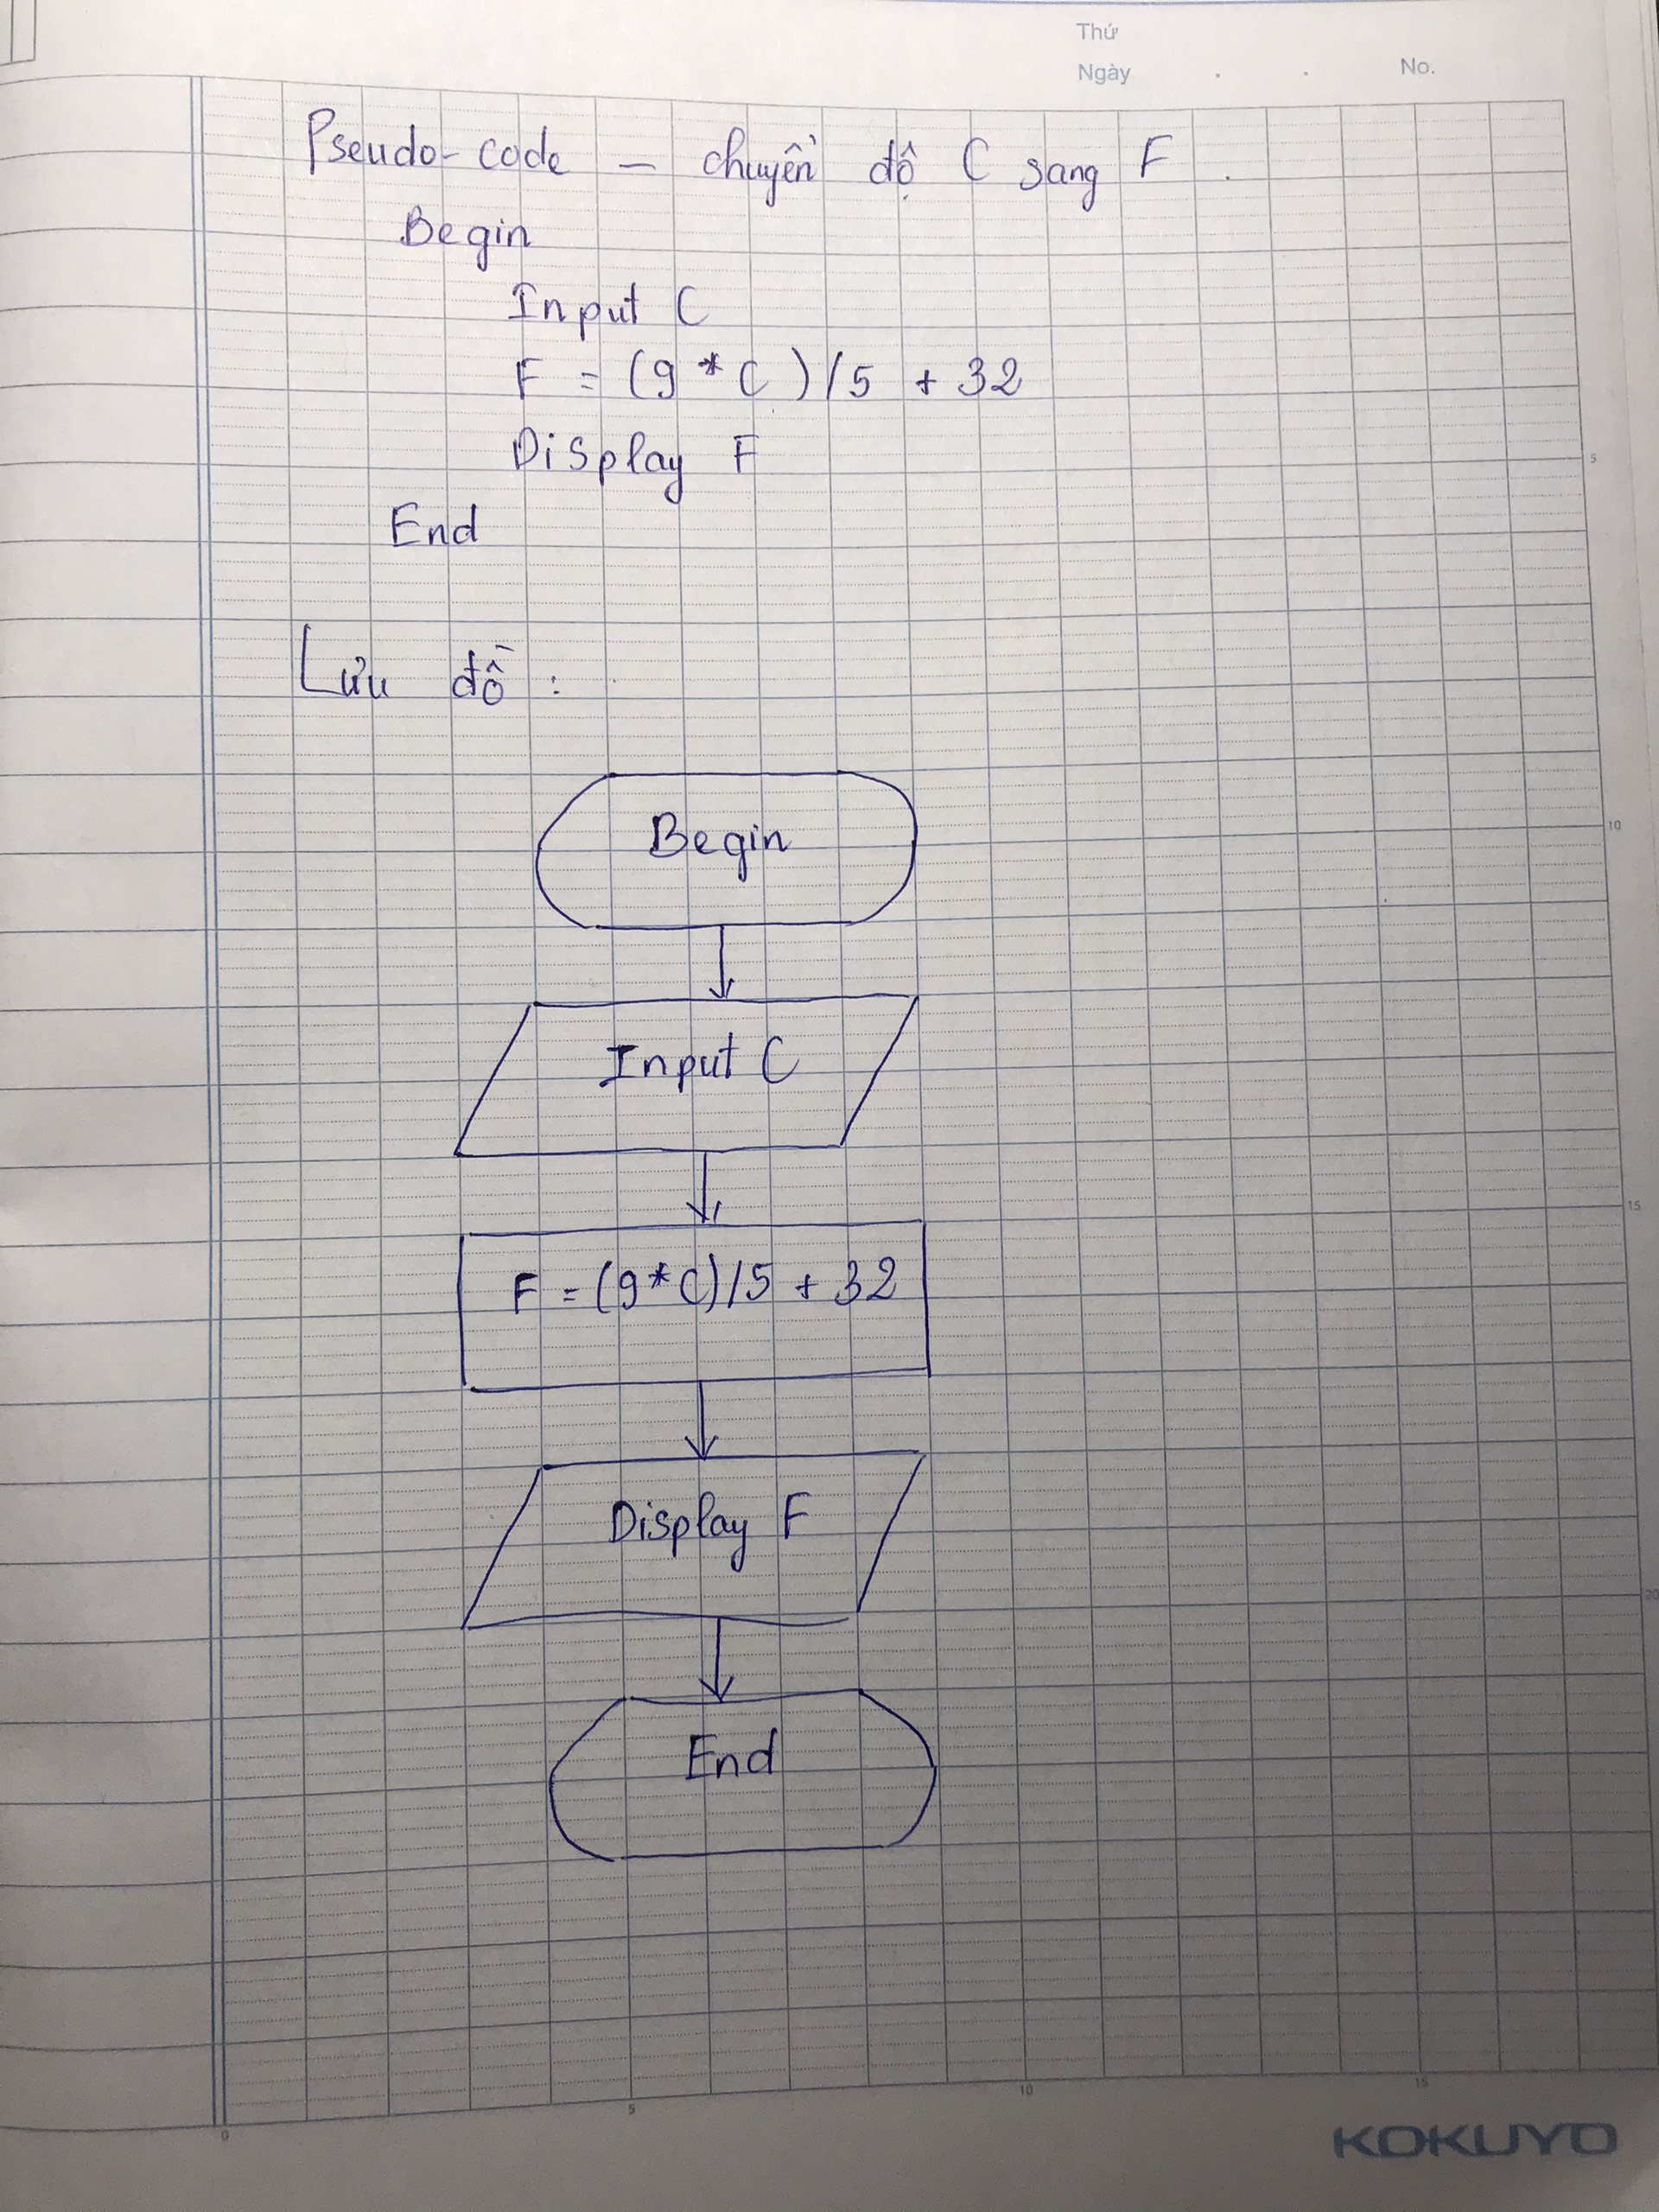 Thứ
Ngày . . No.
Pseudo-code – chuyển độ C sang F.
Begin
Input C
F = (9 * C) / 5 + 32
Display F
End
Lưu đồ :
Begin
Input C
F = (9 * C) / 5 + 32
Display F
End
5
10
15
20
0 5 10 15
KOKUYO